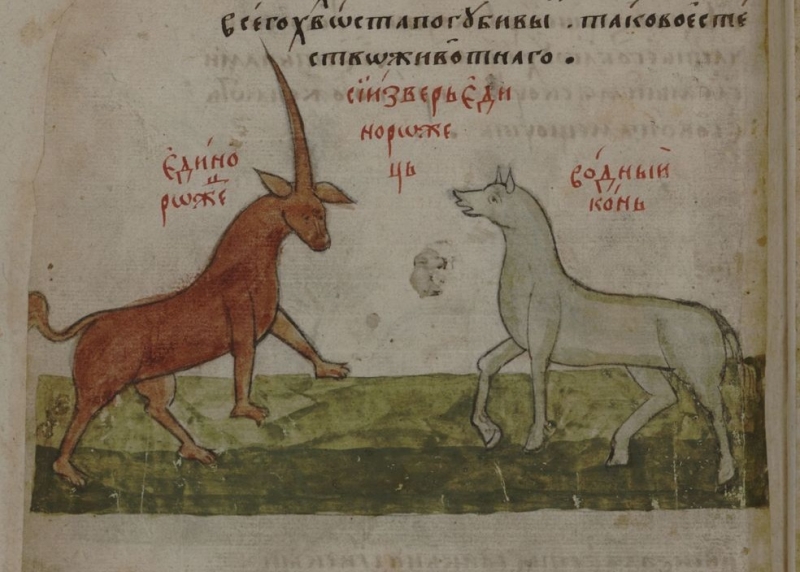 всегѡхвѡстапогубивы . таковоестє
ствѡживо́тнаго .
сїизверьє҆ди
норѡже
ць
є҆ди́но
рѡже
ц
во́дный
ко́нь